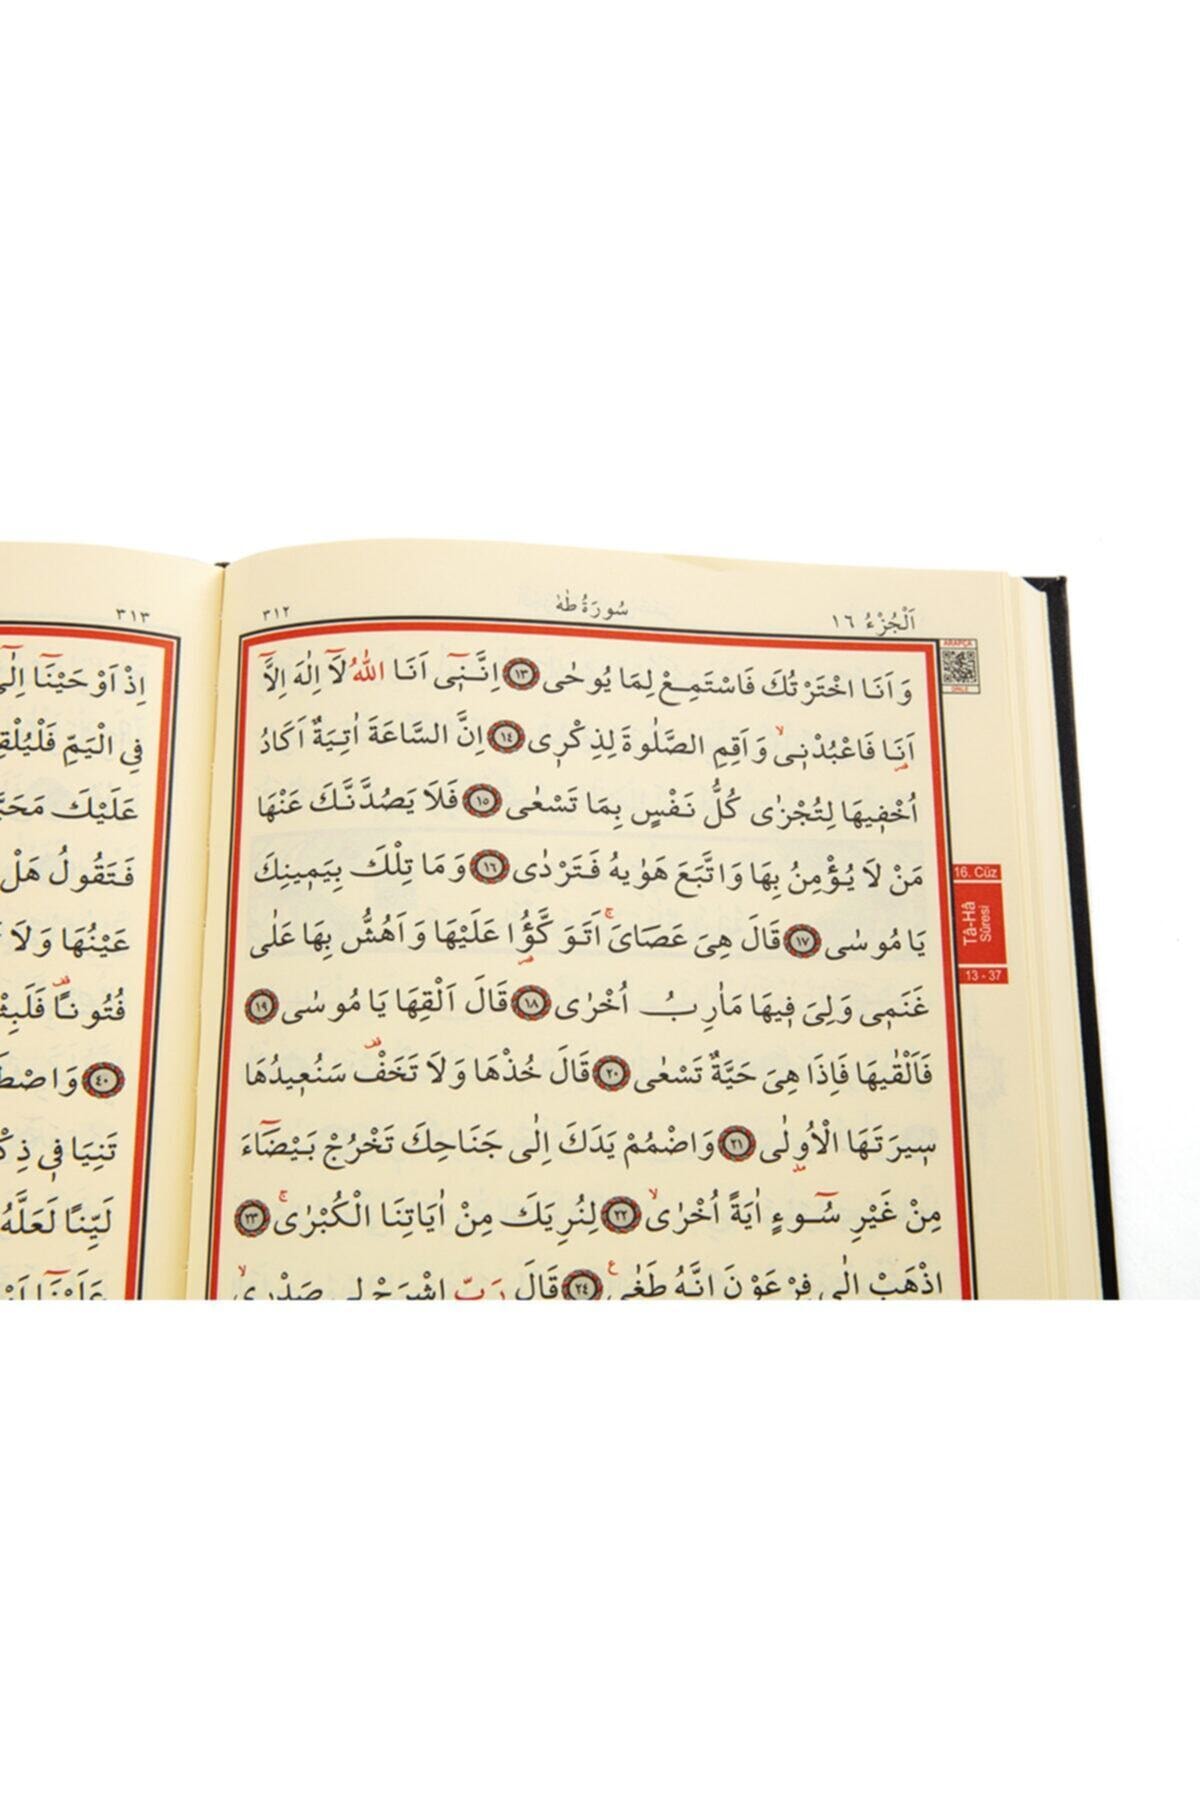 اَلْجُزْءُ ١٦
سُورَةُ طٰهٰ
٣١٢
وَاَنَا اخْتَرْتُكَ فَاسْتَمِعْ لِمَا يُوحٰى ﴿١٣﴾ اِنَّـنٖٓى اَنَا اللّٰهُ لَٓا اِلٰهَ اِلَّٓا
اَنَا فَاعْبُدْنٖىۙ وَاَقِمِ الصَّلٰوةَ لِذِكْرٖى ﴿١٤﴾ اِنَّ السَّاعَةَ اٰتِيَةٌ اَكَادُ
اُخْفٖيهَا لِتُجْزٰى كُلُّ نَفْسٍ بِمَا تَسْعٰى ﴿١٥﴾ فَلَا يَصُدَّنَّكَ عَنْهَا
مَنْ لَا يُؤْمِنُ بِهَا وَاتَّبَعَ هَوٰيهُ فَتَرْدٰى ﴿١٦﴾ وَمَا تِلْكَ بِيَمٖينِكَ
يَا مُوسٰى ﴿١٧﴾ قَالَ هِىَ عَصَاىَۚ اَتَوَكَّؤُا عَلَيْهَا وَاَهُشُّ بِهَا عَلٰى
غَنَمٖى وَلِىَ فٖيهَا مَاٰرِبُ اُخْرٰى ﴿١٨﴾ قَالَ اَلْقِهَا يَا مُوسٰى ﴿١٩﴾
فَاَلْقٰيهَا فَاِذَا هِىَ حَيَّةٌ تَسْعٰى ﴿٢٠﴾ قَالَ خُذْهَا وَلَا تَخَفْ سَنُعٖيدُهَا
سٖيرَتَهَا الْاُو۫لٰى ﴿٢١﴾ وَاضْمُمْ يَدَكَ اِلٰى جَنَاحِكَ تَخْرُجْ بَيْضَٓاءَ
مِنْ غَيْرِ سُٓوءٍ اٰيَةً اُخْرٰىۙ ﴿٢٢﴾ لِنُرِيَكَ مِنْ اٰيَاتِنَا الْكُبْرٰىۚ ﴿٢٣﴾
اِذْهَبْ اِلٰى فِرْعَوْنَ اِنَّهُ طَغٰى ﴿٢٤﴾ قَالَ رَبِّ اشْرَحْ لٖى صَدْرٖىۙ
ARAPÇA
DİNLE
16. Cüz
Tâ-Hâ
Sûresi
13 - 37
٣١٣
اِذْ اَوْحَيْنَٓا اِلٰٓى
فِى الْيَمِّ فَلْيُلْقِ
عَلَيْكَ مَحَبَّ
فَتَقُولُ هَلْ
عَيْنُهَا وَلَا
فُتُونًا فَلَبِثْ
﴿٤٠﴾ وَاصْطَ
تَنِيَا فٖى ذِكْ
لَيِّنًا لَعَلَّهُ
عَلَيْنَٓا اَوْ